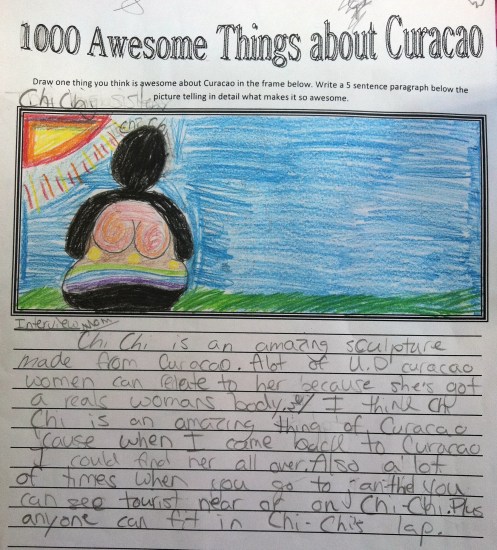 1000 Awesome Things about Curacao
Draw one thing you think is awesome about Curacao in the frame below. Write a 5 sentence paragraph below the
picture telling in detail what makes it so awesome.
Chi Chi
Interview mom
Chi Chi is an amazing sculpture
made from Curacao. Alot of
curacao
women can relate to her because she's got
a reals womans body. I think Chi
Chi is an amazing thing of Curacao
'cause when I come back to Curacao
I could find her all over. Also a lot
of times when you go to you
can see tourist near or on Chi-Chi. Plus
anyone can fit in Chi-Chi's lap.